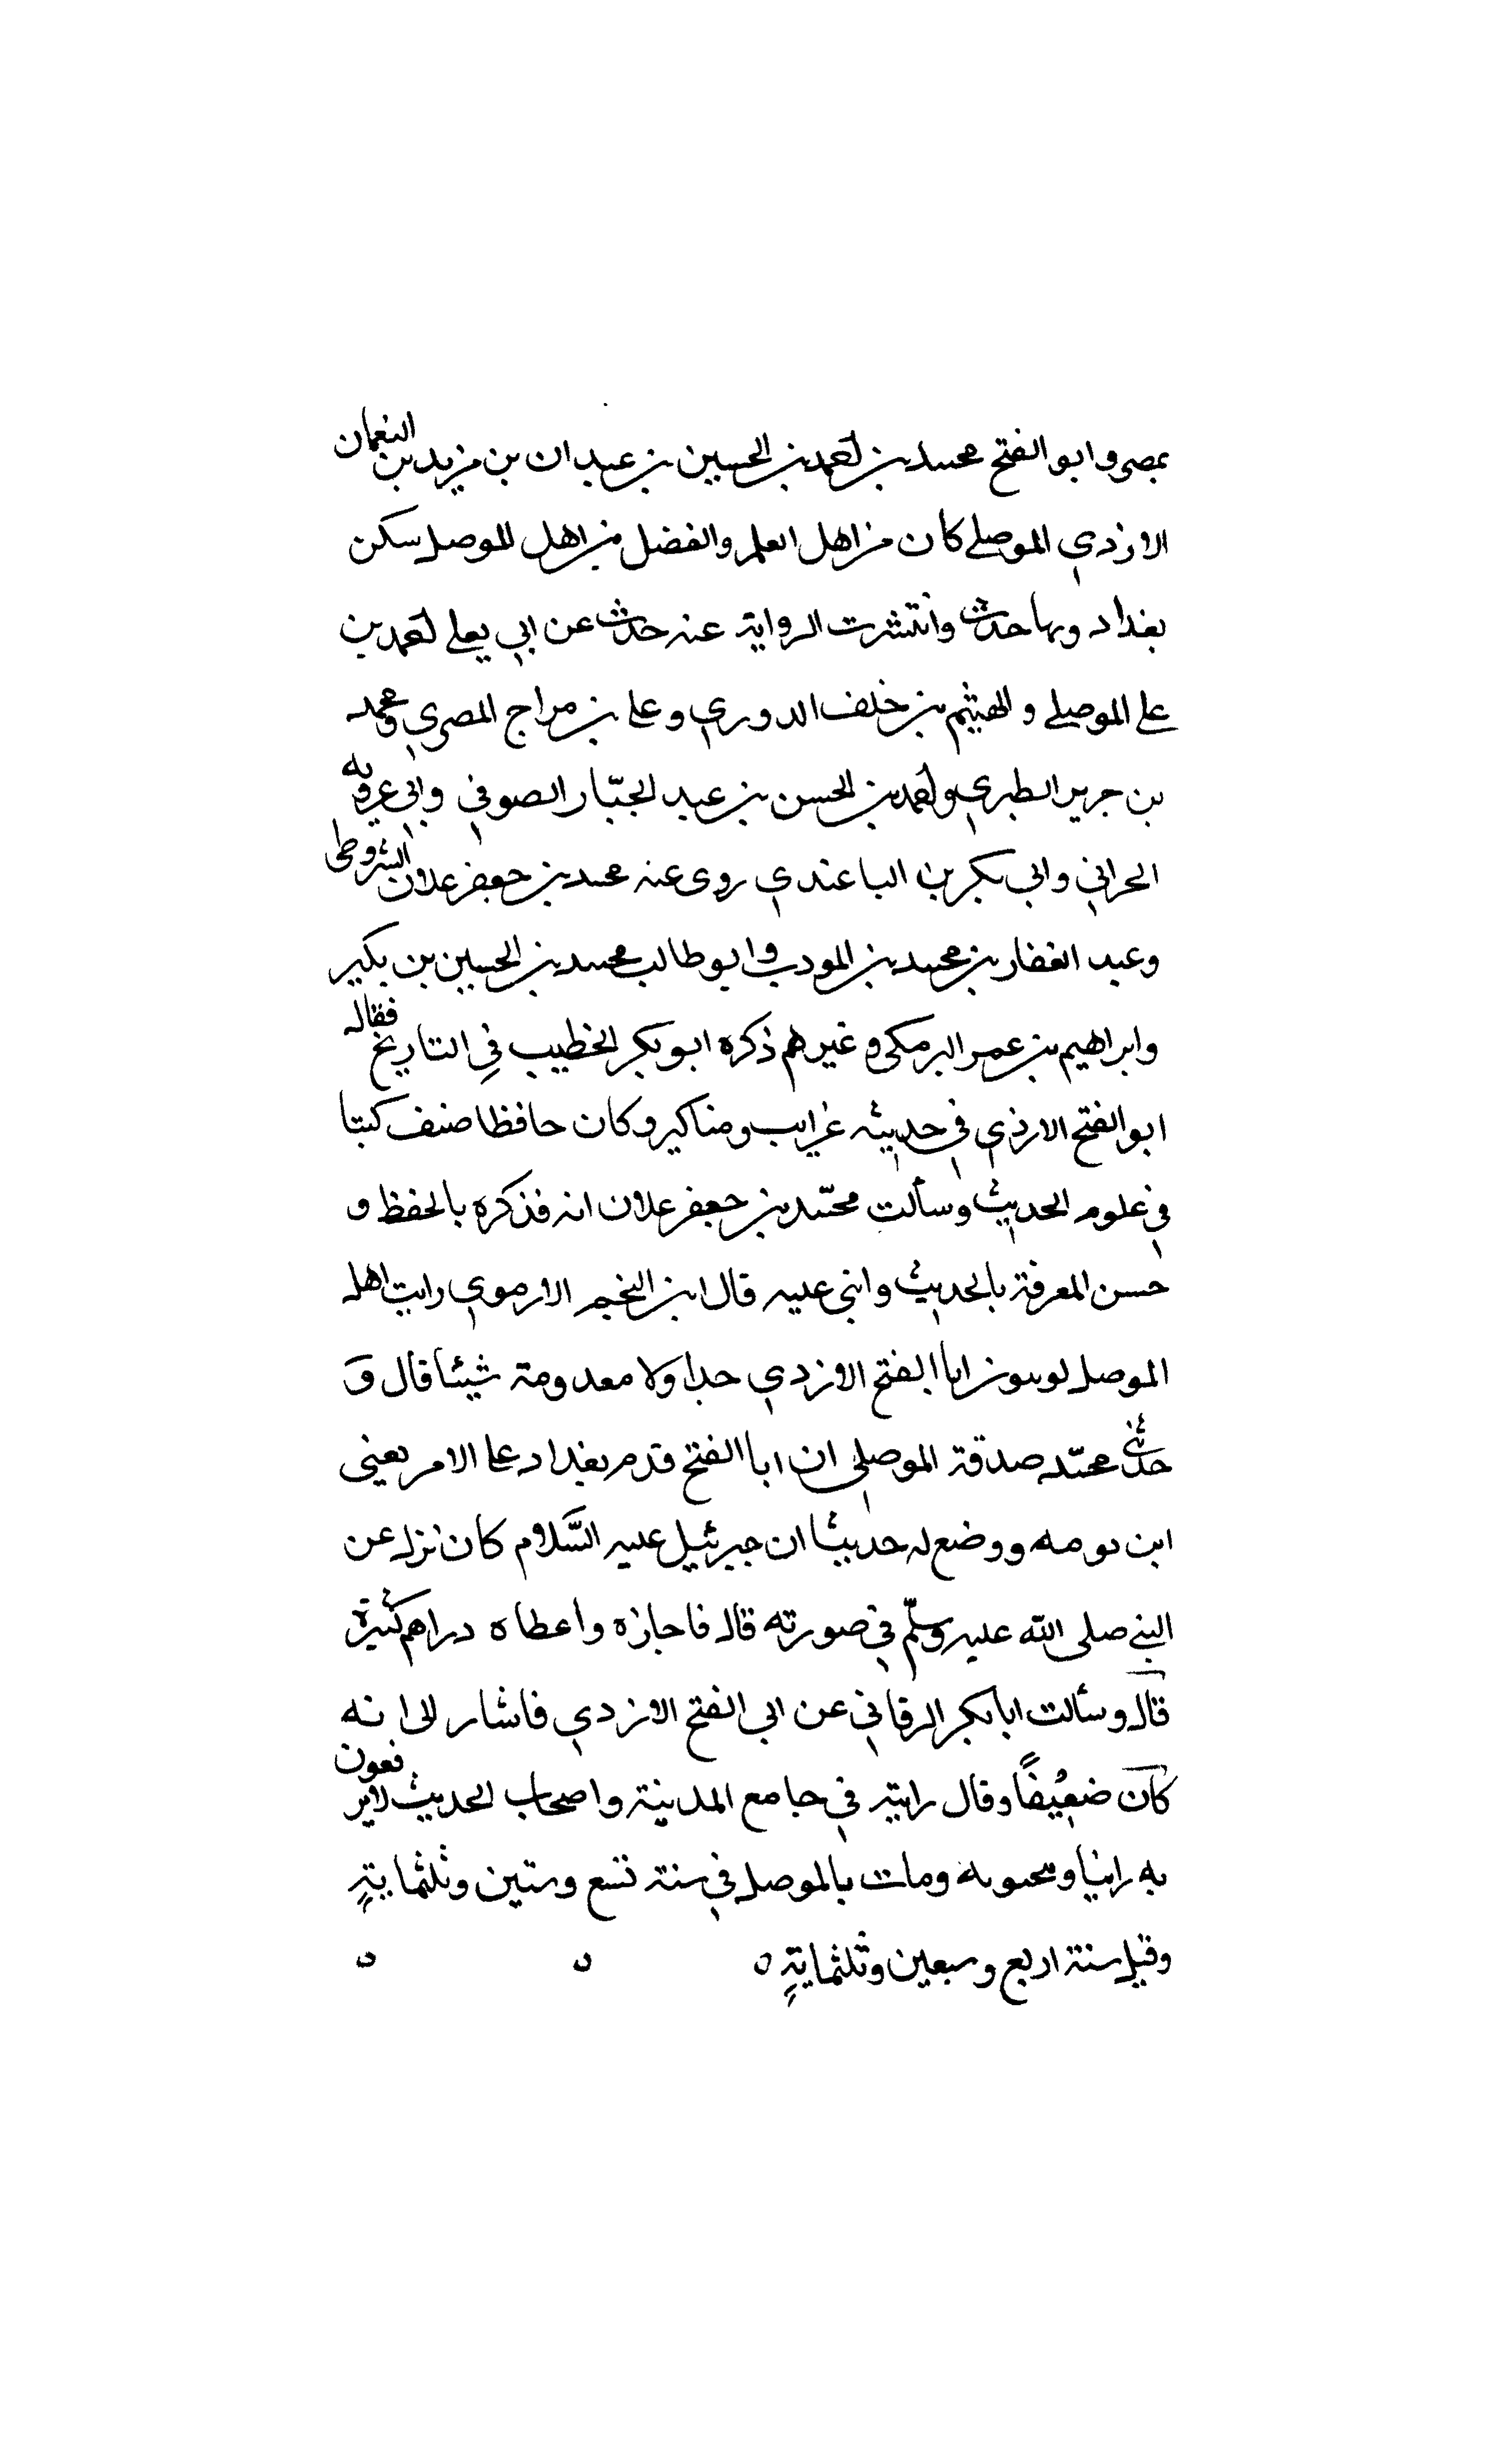 بمصر وابو الفتح محمد بن احمد بن الحسين بن عبدان بن مزيد بن النعمان
الازدي الموصلي كان من اهل العلم والفضل من اهل الموصل سكن
بغداد وبها حدث وانتشرت الرواية عنه حدث عن ابي يعلى احمد بن
على الموصلي والهيثم بن خلف الدوري وعلى بن سراج المصري ومحمد
بن جرير الطبري واحمد بن الحسن بن عبد الجبّار الصوفي وابي عروبه
الحراني وابي بكر بن الباغندي روى عنه محمد بن جعفر علان الشروطى
وعبد الغفار بن محمد بن المودب وابو طالب محمد بن الحسين بن بكير
وابراهيم بن عمر البرمكى وغيرهم ذكره ابو بكر الخطيب فِي التاريخ فقال
ابو الفتح الازدي في حديثه غرايب ومناكير وكان حافظا صنف كتبا
في علوم الحديث وسألت محمّد بن جعفر علان انه فذكره بالحفظ و
حسن المعرفة بالحديث واثنى عليه قال ابن النجيم الارموي رايت اهل
الموصل ابا الفتح الازدي جدا ولا شيئا قال وَ
حدثني محمّد صدقة الموصلي ان ابا الفتح قدم بغداد على الامر يعني
ابن بويه ووضع له حديثا ان جبرئيل عليه السَّلام كان نزل عن
النبي صلى الله عليه وسلّم في صورته قال فاجازه واعطاه دراهم كثيرة
قال وسألت ابا بكر البرقاني عن ابي الفتح الازدي فاشار الى انه
كان ضعيفًا وقال رايته في جامع المدينة واصحاب الحديث لا يرفعون
به راسا ومات بالموصل في سنة تسع وستين وثلثمايةٍ
وقيل سنة اربع وسبعين وثلثمايةٍ ه ه ه